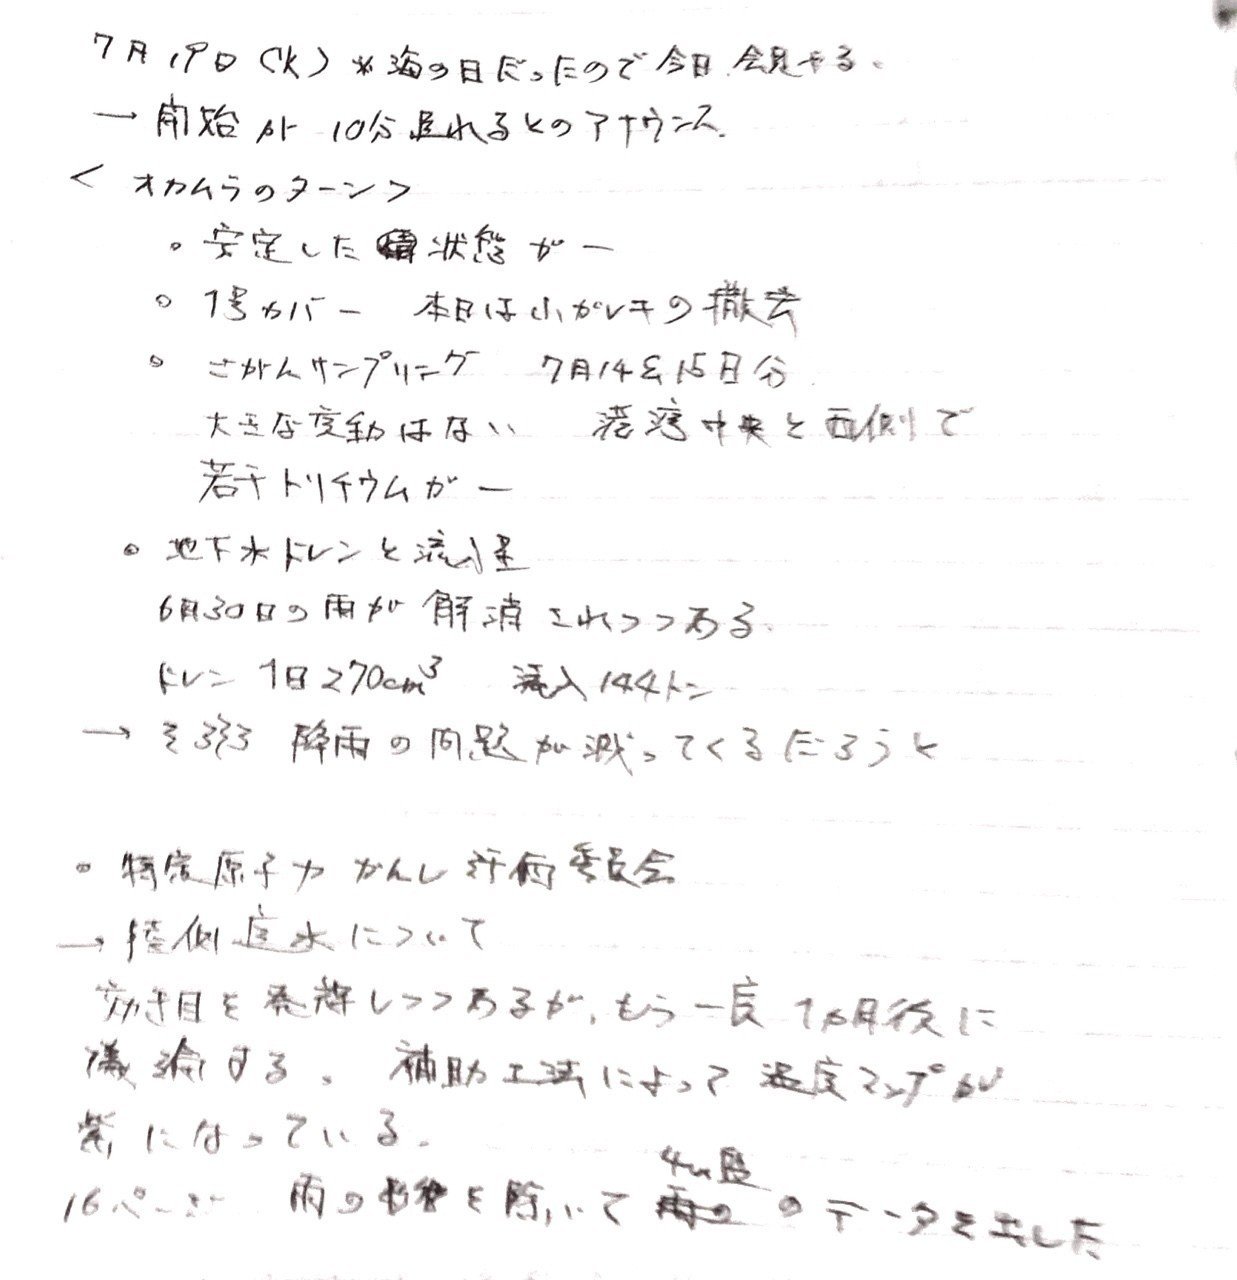 7月19日（火）※海の日だったので今日会見する。
→ 開始が10分遅れるとのアナウンス.
＜オカムラのターン＞
。安定した状態がー
。1号カバー 本日は小ガレキの撤去
。さがんサンプリング 7月14と15日分
大きな変動はない 港湾中央と西側で
若干トリチウムがー
。地下水ドレンと流入量
6月30日の雨が解消されつつある.
ドレン 1日270cm³ 流入144トン
→ そろそろ降雨の問題が減ってくるだろうと
。特定原子力かんし評価委員会
→ 陸側遮水について
効き目を発揮しつつあるが、もう一度1ヵ月後に
議論する。補助工法によって温度マップが
紫になっている。
16ページ 雨の影響を除いて 4m盤 のデータを出した